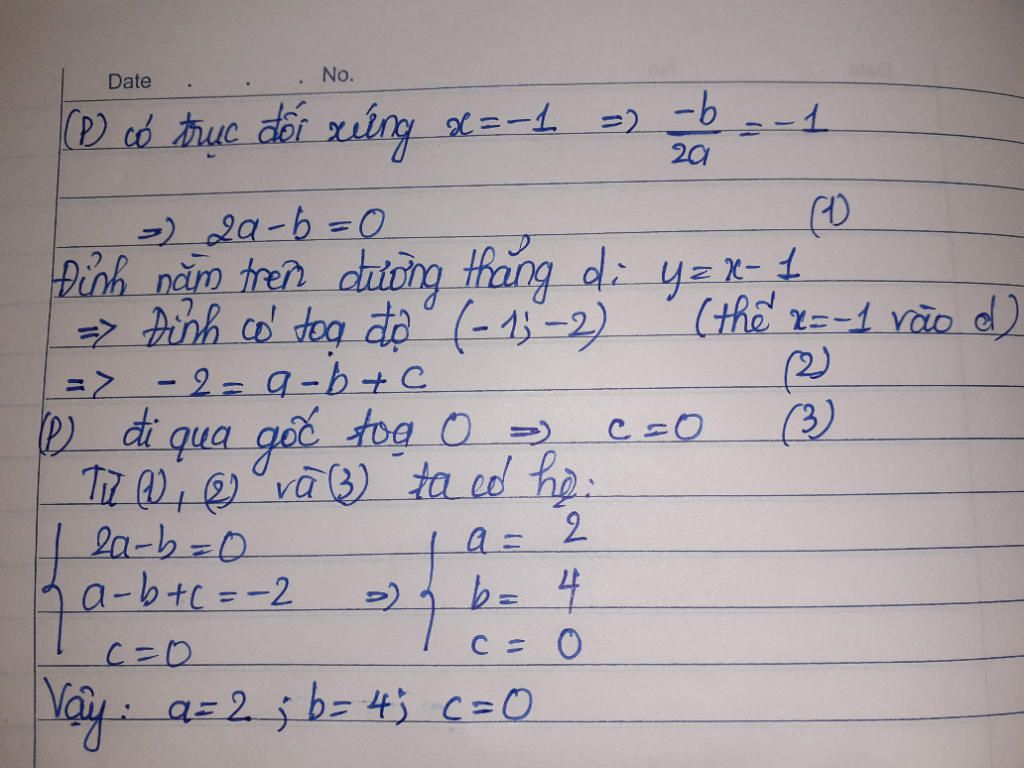 Date . . . No.
(P) có trục đối xứng x = -1 => -b/2a = -1
=> 2a - b = 0 (1)
Đỉnh nằm trên đường thẳng d: y = x - 1
=> Đỉnh có toạ độ (-1; -2) (thế x = -1 vào d)
=> -2 = a - b + c (2)
(P) đi qua gốc toạ O => c = 0 (3)
Từ (1), (2) và (3) ta có hệ:
{ 2a - b = 0 { a = 2
a - b + c = -2 => b = 4
c = 0 c = 0
Vậy: a = 2 ; b = 4; c = 0